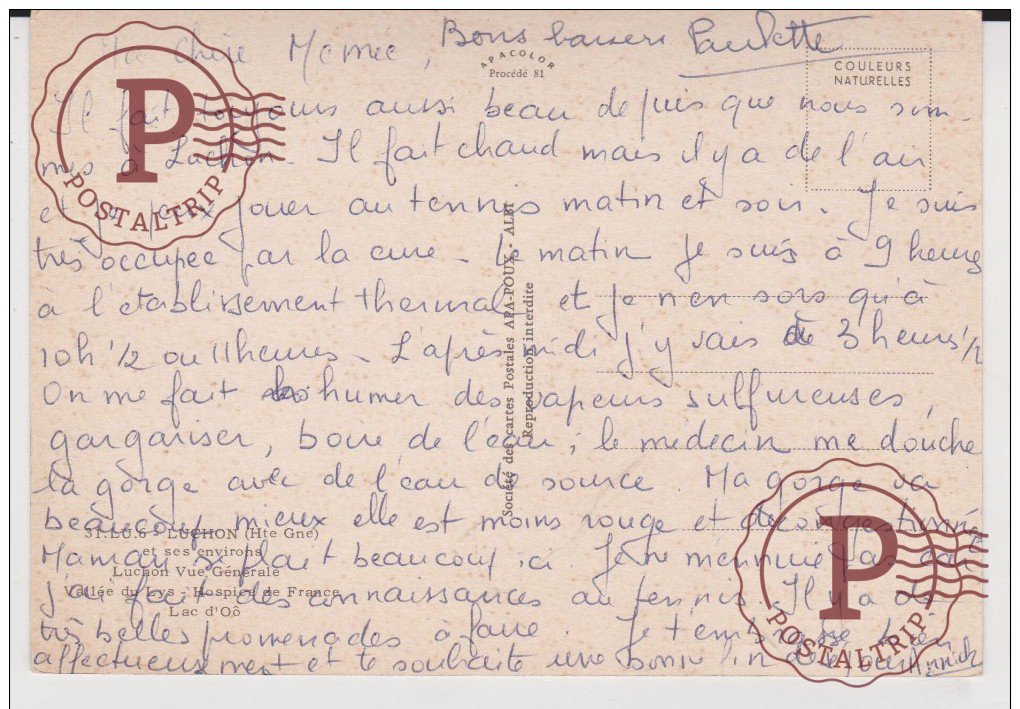 Ma Chère Memée, Bons baisers Paulette
APACOLOR
Procédé 81
COULEURS
NATURELLES
Il fait toujours aussi beau depuis que nous som-
mes à Luchon. Il fait chaud mais il y a de l'air
et je peux jouer au tennis matin et soir. Je suis
très occupée par la cure. Le matin je suis à 9 heures
à l'établissement thermal et je n'en sors qu'à
10h 1/2 ou 11 heures. L'après midi j'y vais à 3 heures 1/2
On me fait humer des vapeurs sulfureuses,
gargariser, boire de l'eau ; le medecin me douche
la gorge avec de l'eau de source Ma gorge va
beaucoup mieux elle est moins rouge et décongestionnée
Maman se plait beaucoup ici. Je ne m'ennuie pas car
j'ai fait des connaissances au tennis. Il y a de
très belles promenades à faire. Je t'embrasse bien
affectueusement et te souhaite une bonne fin de Annick
Société des cartes Postales APA-POUX - ALBI
Reproduction interdite
31.LU.6 - LUCHON (Hte Gne)
et ses environs
Luchon Vue Générale
Vallée du Lys - Hospice de France
Lac d'Oô
P
POSTALTRIP
P
POSTALTRIP